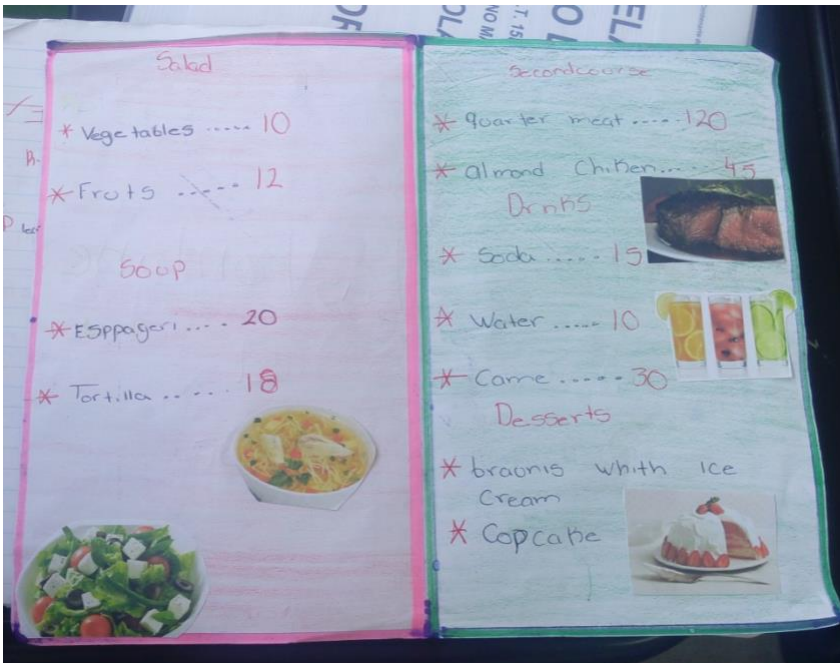 Salad
* Vegetables ..... 10
* Fruts ..... 12
Soup
* Esppageri .... 20
* Tortilla ..... 18
Secondcourse
* quarter meat ..... 120
* almond Chiken.... 45
Drnks
* Soda ..... 15
* Water ..... 10
* Came ..... 30
Desserts
* braunis whith Ice
Cream
* Copcake